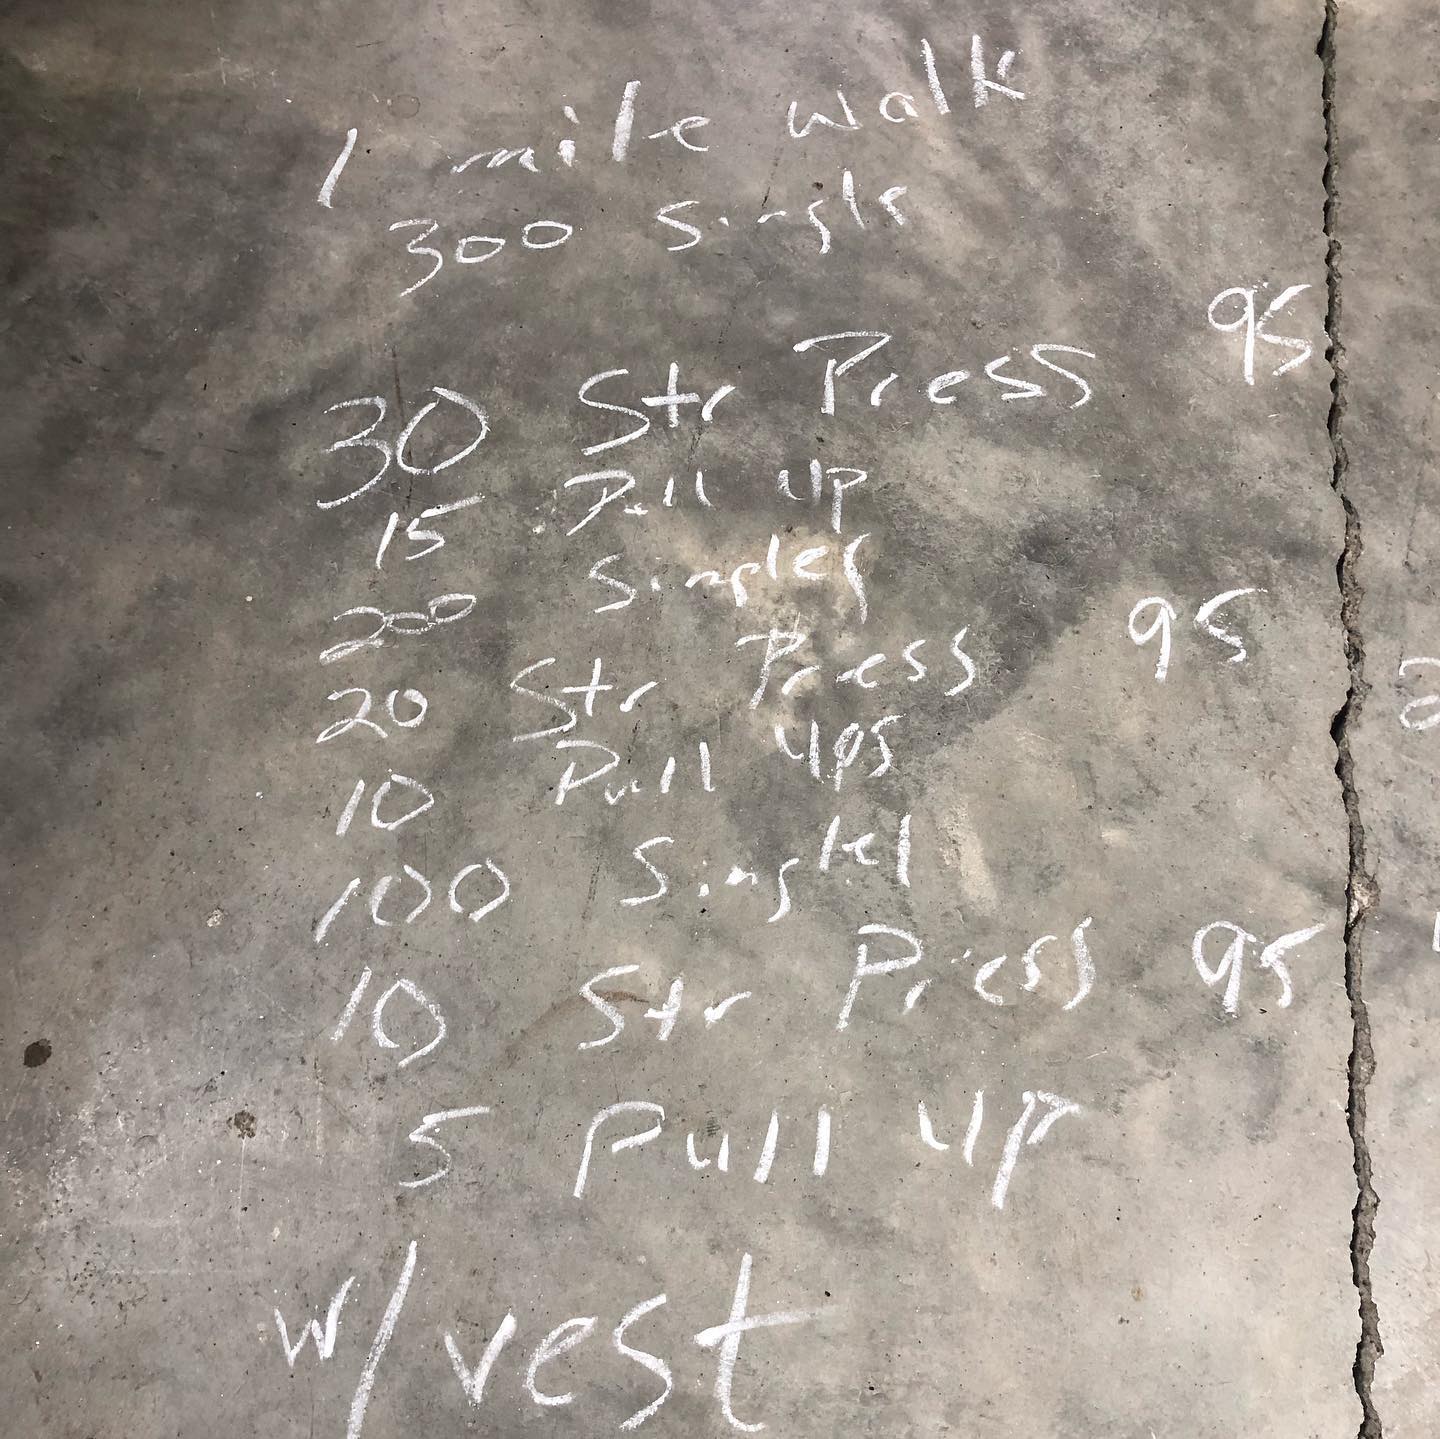 1 mile walk
300 single
30 Str Press 95
15 Pull up
200 Singles
20 Str Press 95
10 Pull ups
100 Singles
10 Str Press 95
5 Pull up
w/vest